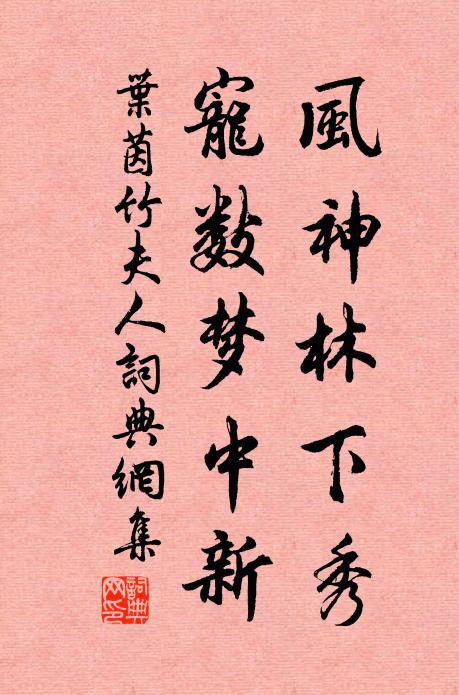 風神林下秀
寵数梦中新
葉茵竹夫人詞典網集
詞典網印